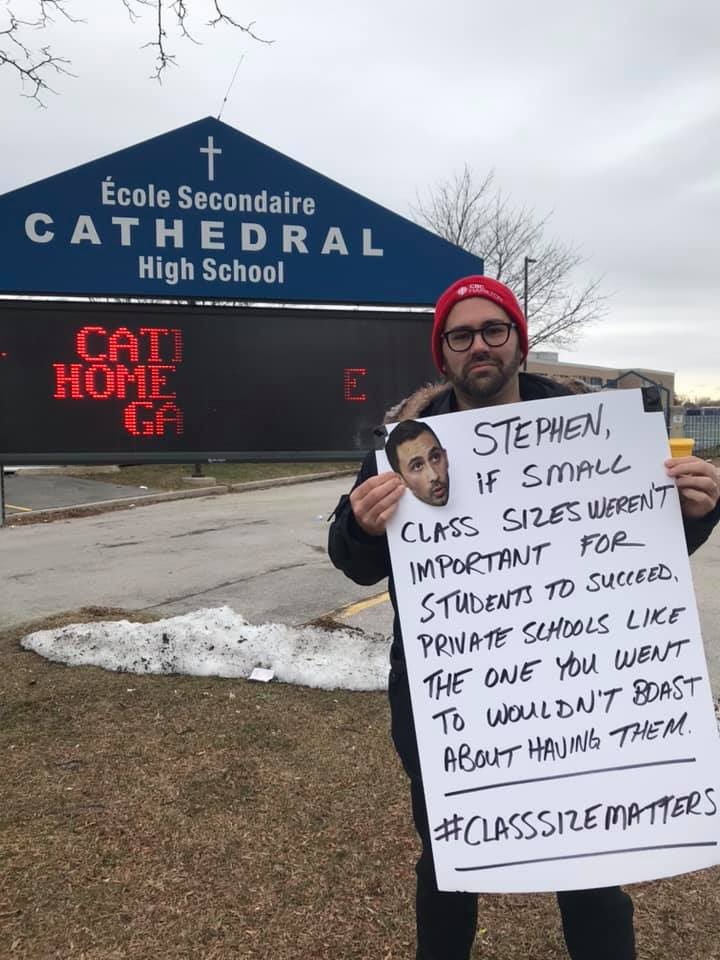 École Secondaire
CATHEDRAL
High School
CAT
HOME E
GA
CBC
HAMILTON
STEPHEN,
IF SMALL
CLASS SIZES WEREN'T
IMPORTANT FOR
STUDENTS TO SUCCEED,
PRIVATE SCHOOLS LIKE
THE ONE YOU WENT
TO WOULDN'T BOAST
ABOUT HAVING THEM.
#CLASSSIZEMATTERS